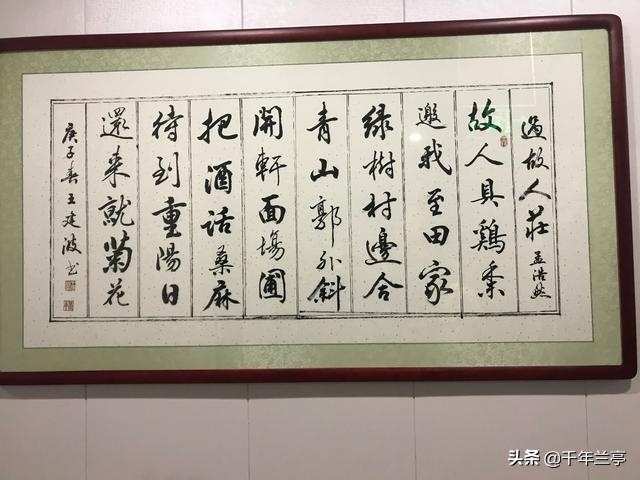 過故人莊 孟浩然
故人具鷄黍
邀我至田家
绿樹村邊合
青山郭外斜
開軒面場圃
把酒话桑麻
待到重陽日
還来就菊花
庚子春王建波书
头条 @千年兰亭